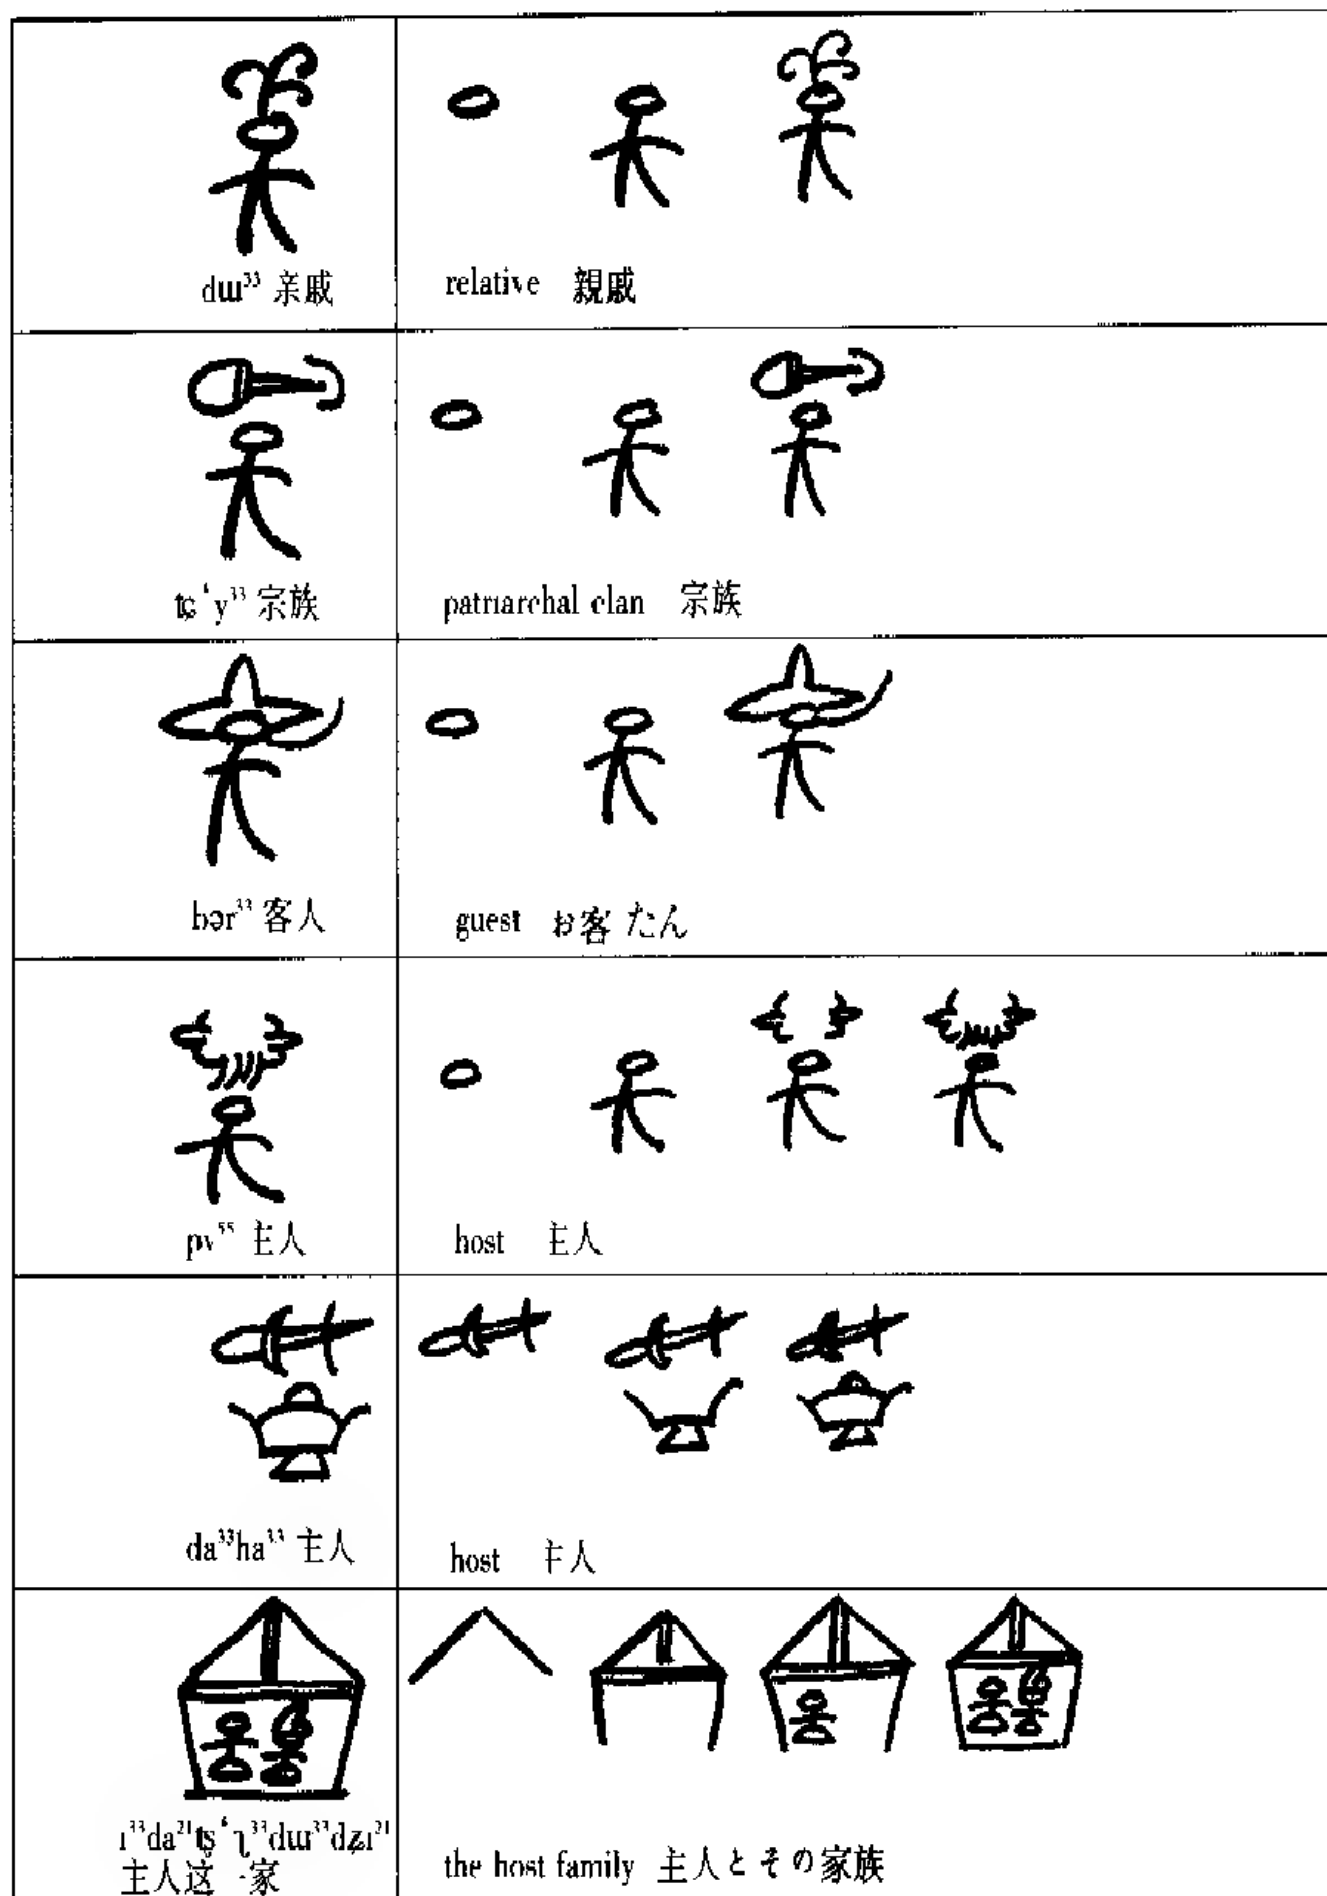 dɯ³³ 亲戚
relative 親戚
tɕ‘y³³ 宗族
patriarchal clan 宗族
bər³³ 客人
guest お客 たん
pv⁵⁵ 主人
host 主人
da³³ha³³ 主人
host 主人
ɪ³³da²¹tʂ‘ʅ³³dɯ³³dʑɪ²¹
主人这一家
the host family 主人とその家族